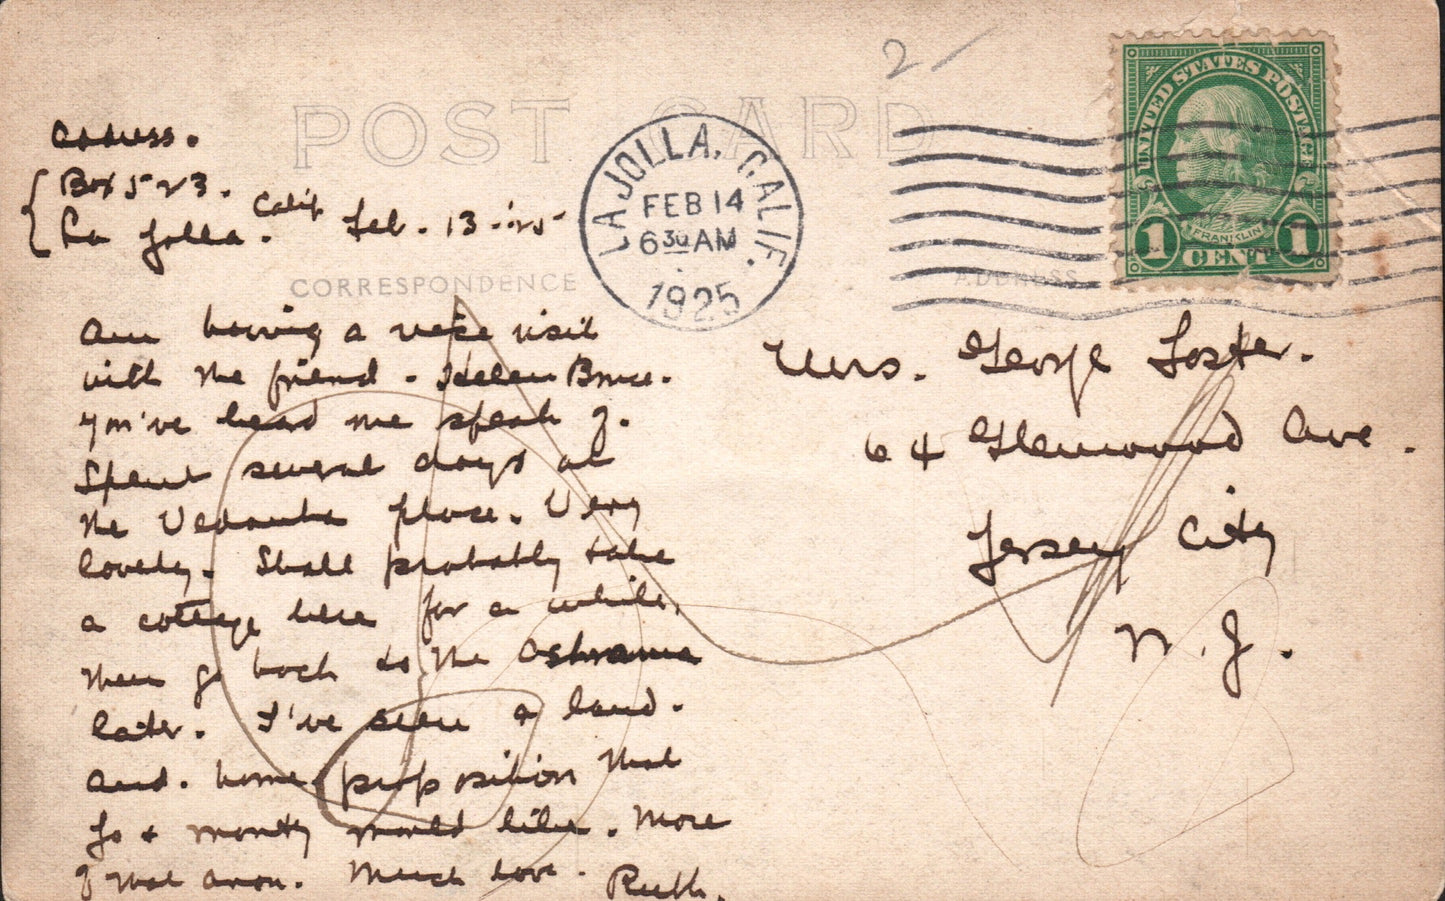 2
POST CARD
UNITED STATES POSTAGE
FRANKLIN
1 CENT 1
LA JOLLA, CALIF.
FEB 14
6 30 AM
1925
Address.
Box 523.
La Jolla. Calif Feb. 13-'25
CORRESPONDENCE
ADDRESS
Am having a nice visit
with the friend. Helen Bruce.
You've heard me speak of.
Spent several days at
the Vedanta place. Very
lovely. Shall probably take
a cottage here for a while.
Then go back to the Ashrama
later. I've seen a land.
and. home. proposition that
Jo & Monty would like. More
of that anon. Much love. Ruth.
Mrs. George Foster.
64 Glenwood Ave.
Jersey City
N. J.